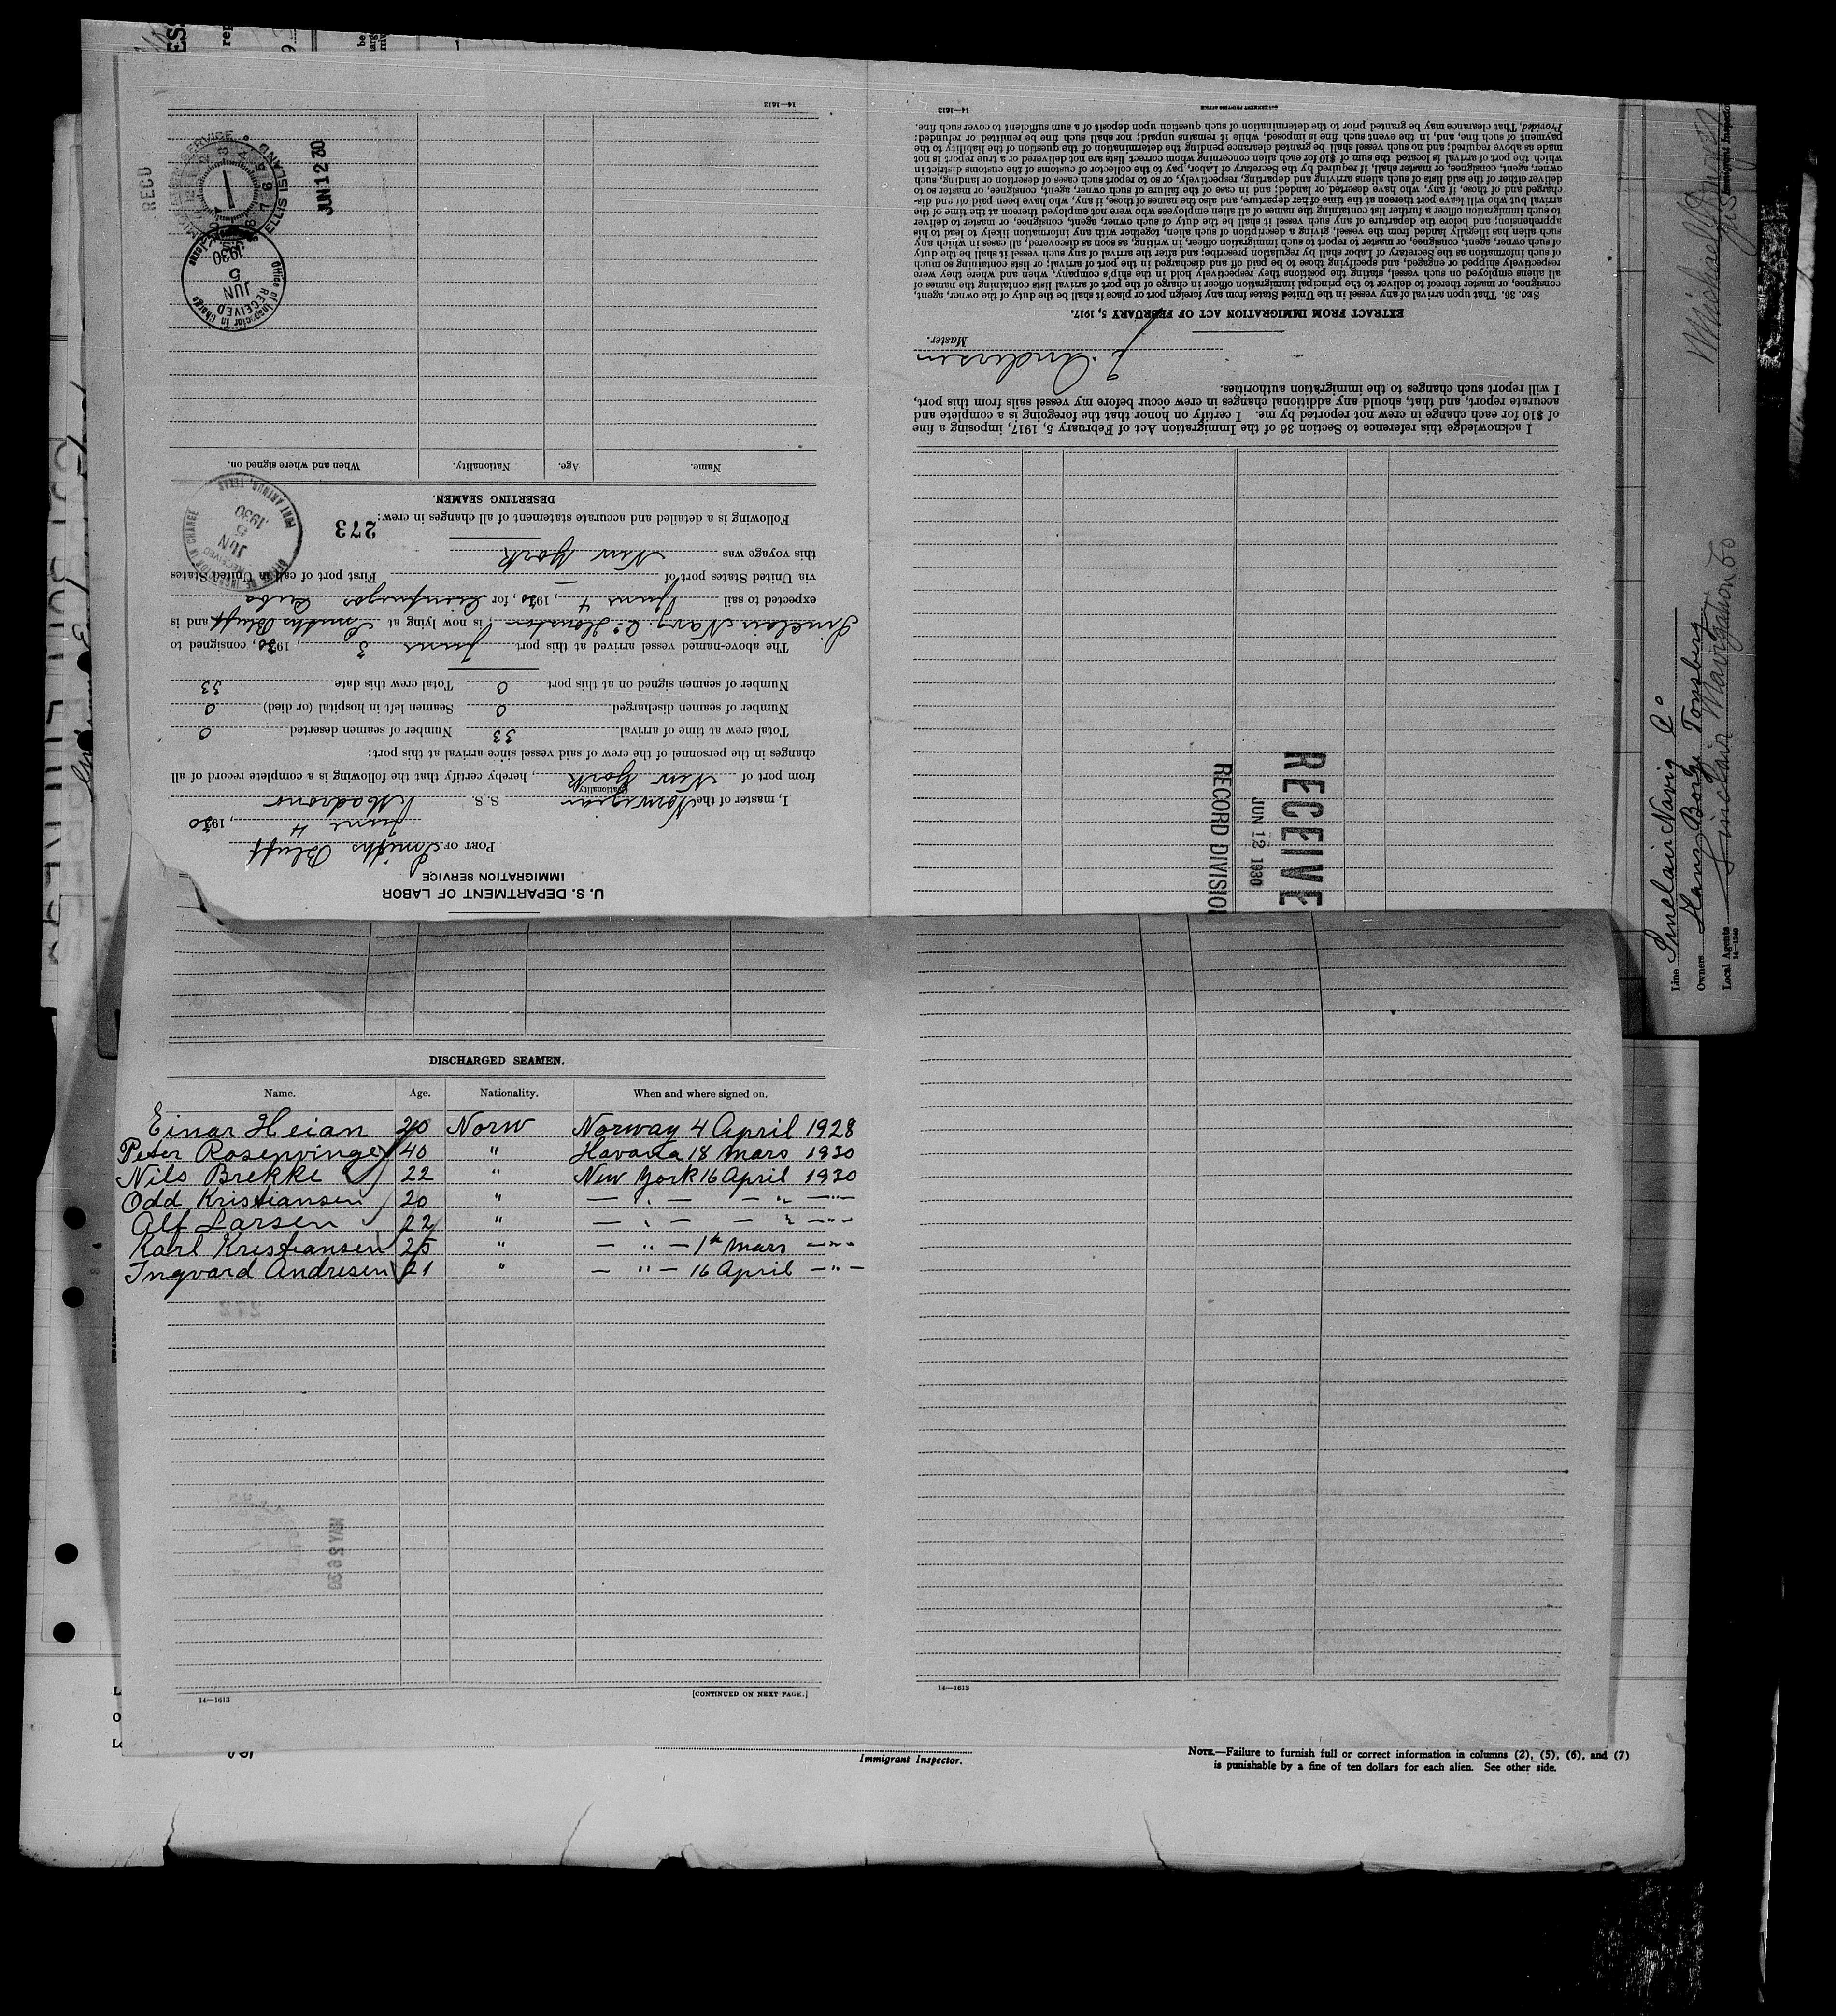 U. S. DEPARTMENT OF LABOR
IMMIGRATION SERVICE
PORT OF Smiths Bluff
June 4, 1930
I, master of the Norwegian S. S. Madrono
(Nationality)
from port of New York, hereby certify that the following is a complete record of all
changes in the personnel of the crew of said vessel since arrival at this port:
Total crew at time of arrival 33 Number of seamen deserted 0
Number of seamen discharged 0 Seamen left in hospital (or died) 0
Number of seamen signed on at this port 0 Total crew this date 33
The above-named vessel arrived at this port June 3, 1930, consigned to
Sinclair Navig. Co Houston, is now lying at Smiths Bluff and is
expected to sail June 4, 1930, for Cienfuegos Cuba
via United States port of — First port of call in United States
this voyage was New York
Following is a detailed and accurate statement of all changes in crew:
273
DESERTING SEAMEN.
Name. Age. Nationality. When and where signed on.
OFFICE OF INSPECTOR IN CHARGE
RECEIVED
JUN
5
1930
PORT ARTHUR, TEXAS
Office of Inspector in Charge
RECEIVED
JUN
5
1930
ELLIS ISLAND
RECD
JUN 12
14—1613
I acknowledge this reference to Section 36 of the Immigration Act of February 5, 1917, imposing a fine
of $10 for each change in crew not reported by me. I certify on honor that the foregoing is a complete and
accurate report, and that, should any additional changes in crew occur before my vessel sails from this port,
I will report such changes to the immigration authorities.
Andersen
Master.
EXTRACT FROM IMMIGRATION ACT OF FEBRUARY 5, 1917.
SEC. 36. That upon arrival of any vessel in the United States from any foreign port or place it shall be the duty of the owner, agent,
consignee, or master thereof to deliver to the principal immigration officer in charge of the port of arrival lists containing the names of
all aliens employed on such vessel, stating the positions they respectively hold in the ship's company, when and where they were
respectively shipped or engaged, and specifying those to be paid off and discharged in the port of arrival; or lists containing so much
of such information as the Secretary of Labor shall by regulation prescribe; and after the arrival of any such vessel it shall be the duty
of such owner, agent, consignee, or master to report to such immigration officer, in writing, as soon as discovered, all cases in which any
such alien has illegally landed from the vessel, giving a description of such alien, together with any information likely to lead to his
apprehension; and before the departure of any such vessel it shall be the duty of such owner, agent, consignee, or master to deliver
to such immigration officer a further list containing the names of all alien employees who were not employed thereon at the time of the
arrival but who will leave port thereon at the time of her departure, and also the names of those, if any, who have been paid off and dis-
charged and of those, if any, who have deserted or landed; and in case of the failure of such owner, agent, consignee, or master so to
deliver either of the said lists of such aliens arriving and departing, respectively, or so to report such cases of desertion or landing, such
owner, agent, consignee, or master, shall, if required by the Secretary of Labor, pay to the collector of customs of the customs district in
which the port of arrival is located the sum of $10 for each alien concerning whom correct lists are not delivered or a true report is not
made as above required; and no such vessel shall be granted clearance pending the determination of the question of the liability to the
payment of such fine, and, in the event such fine is imposed, while it remains unpaid; nor shall such fine be remitted or refunded:
Provided, That clearance may be granted prior to the determination of such question upon deposit of a sum sufficient to cover such fine.
14—1613
GOVERNMENT PRINTING OFFICE
RECEIVE
JUN 12 1930
RECORD DIVISIO
Line Sinclair Navig Co
Owners Hans Borge Tonsberg
Local Agents Sinclair Navigation Co
14—1240
Immigrant Inspector
DISCHARGED SEAMEN.
Name. Age. Nationality. When and where signed on.
Einar Heian 20 Norw Norway 4 April 1928
Peter Rosenvinge 40 " Havana 18 Mars 1930
Nils Brekke 22 " New York 16 April 1930
Odd Kristiansen 20 " — " — — " — " —
Alf Larsen 22 " — " — — " — " —
Karl Kristiansen 25 " — " — 1st Mars — " —
Ingvard Andresen 21 " — " — 16 April — " —
272
MAY 26
14—1613
[CONTINUED ON NEXT PAGE.]
14—1613
Immigrant Inspector.
NOTE.—Failure to furnish full or correct information in columns (2), (5), (6), and (7)
is punishable by a fine of ten dollars for each alien. See other side.